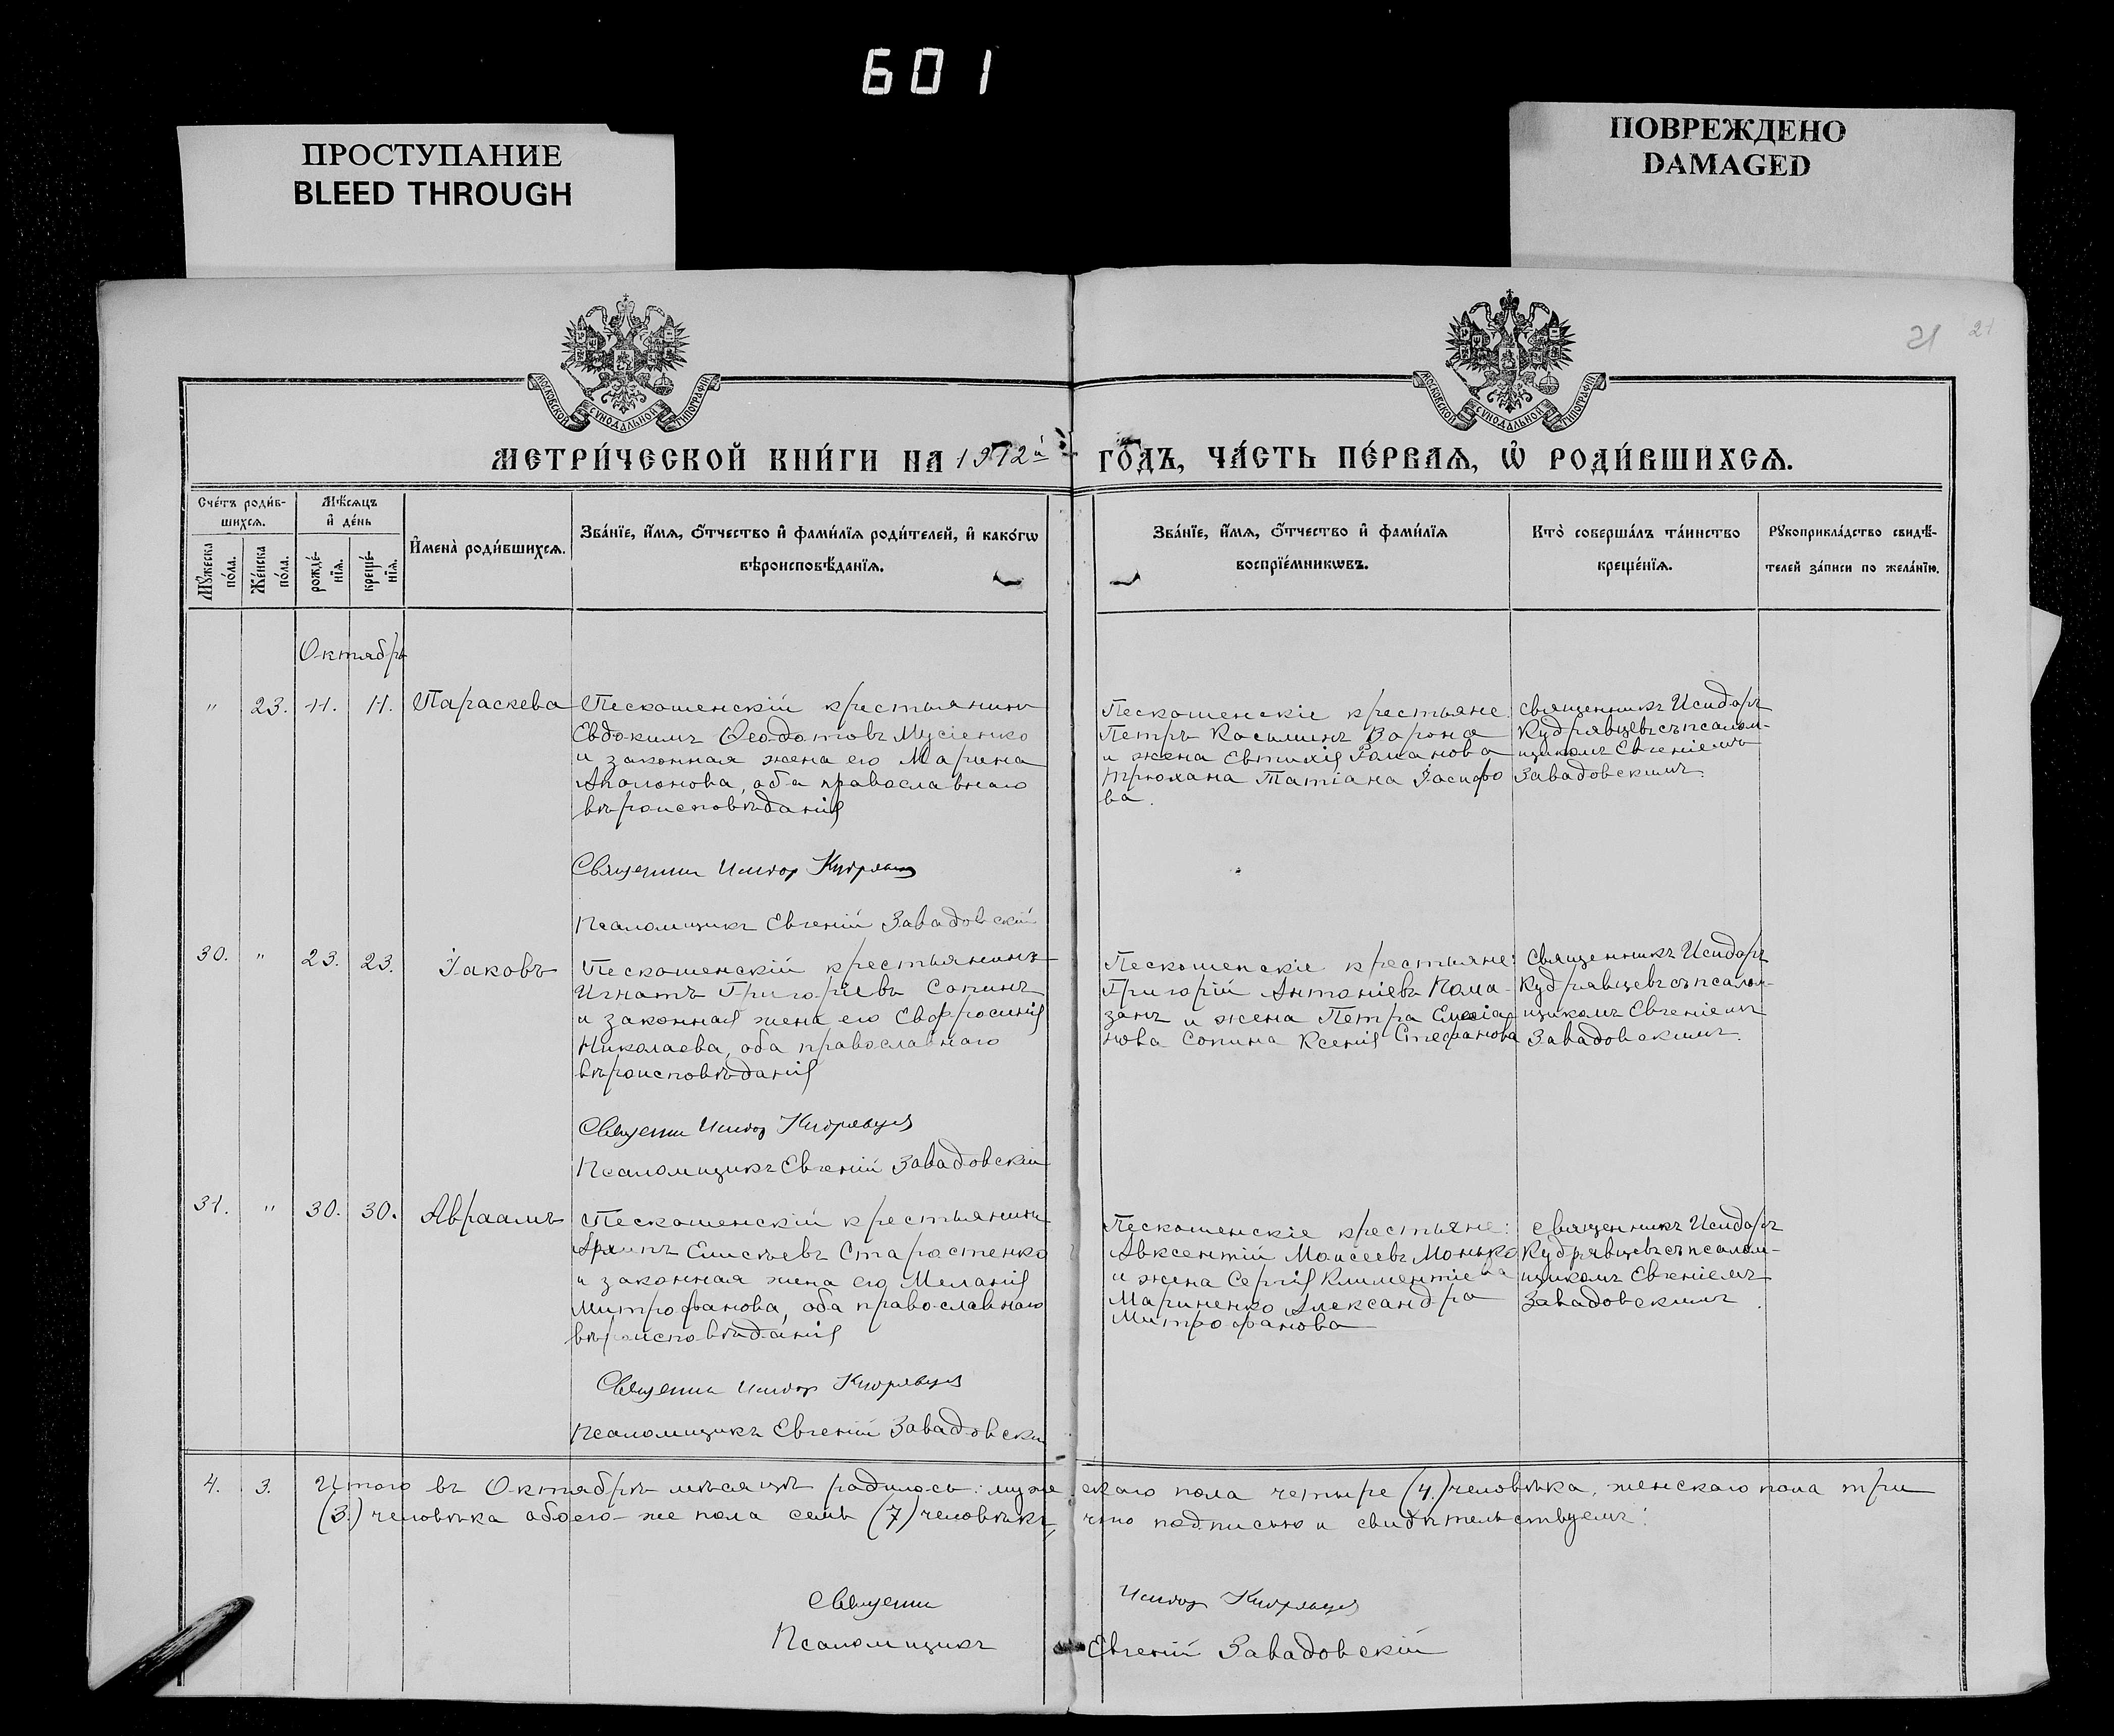 601
ПРОСТУПАНИЕ
BLEED THROUGH
ПОВРЕЖДЕНО
DAMAGED
21 21
МОСКОВСКОЙ СѴНОДАЛЬНОЙ ТИПОГРАФІИ
МОСКОВСКОЙ СѴНОДАЛЬНОЙ ТИПОГРАФІИ
МЕТРИ́ЧЕСКОЙ КНИ́ГИ НА 1912й ГО́ДЪ, ЧА́СТЬ ПЕ́РВАЯ, Ѡ҆ РОДИ́ВШИХСЯ.
Сче́тъ роди́в-
шихся.
Мꙋ́жеска по́ла.
Же́нска по́ла.
Мѣ́сяцъ
и҆ де́нь
рожде́-
нїя.
креще́-
нїя.
И҆мена̀ роди́вшихся.
Зва́нїе, и҆́мя, ѻ҆́тчество и҆ фами́лїя роди́телей, и҆ како́гѡ
вѣроисповѣ́данїя.
Зва́нїе, и҆́мя, ѻ҆́тчество и҆ фами́лїя
воспрїе́мникѡвъ.
Кто̀ соверша́лъ та́инство
креще́нїя.
Рꙋкоприкла́дство свидѣ́-
телей за́писи по жела́нїю.
Октябрь
" 23. 11. 11. Параскева
Пескошенскій крестьянинъ
Евдокимъ Ѳеодотовъ Мусіенко
и законная жена его Марина
Аполонова, оба православнаго
вѣроисповѣданія
Священникъ Исидор Кудрявцев
Псаломщикъ Евгеній Завадовскій
Пескошенскіе крестьяне
Петръ Косьминъ Ворона
и жена Евтихія Романова
Трюхана Татіана Іосифо
ва.
Священникъ Исидоръ
Кудрявцевъ съ псалом-
щикомъ Евгеніемъ
Завадовскимъ.
30. " 23. 23. Іаковъ
Пескошенскій крестьянинъ
Игнатъ Григоріевъ Сопинъ
и законная жена его Евфросинія
Николаева, оба православнаго
вѣроисповѣданія
Священник Исидор Кудрявцев
Псаломщикъ Евгеній Завадовскій
Пескошенскіе крестьяне:
Григорій Антоніевъ Пома-
занъ и жена Петра
нова Сопина Ксенія Стефанова
Священникъ Исидоръ
Кудрявцевъ съ псалом-
щикомъ Евгеніемъ
Завадовскимъ.
31. " 30. 30. Авраамъ
Пескошенскій крестьянинъ
Архипъ Елисѣевъ Старостенко
и законная жена его Меланія
Митрофанова, оба православнаго
вѣроисповѣданія
Священник Исидор Кудрявцев
Псаломщикъ Евгеній Завадовскій
Пескошенскіе крестьяне:
Авксентій Моисеевъ Монько
и жена Сергія Климентіева
Мариненко Александра
Митрофанова
Священникъ Исидоръ
Кудрявцевъ съ псалом-
щикомъ Евгеніемъ
Завадовскимъ.
4. 3. Итого въ Октябрѣ мѣсяцѣ родилось: мужескаго пола четыре (4.) человѣка, женскаго пола три
(3.) человѣка обоего-же пола семь (7) человѣкъ, что подписью и свидѣтельствуемъ:
Священник Исидор Кудрявцев
Псаломщикъ Евгеній Завадовскій